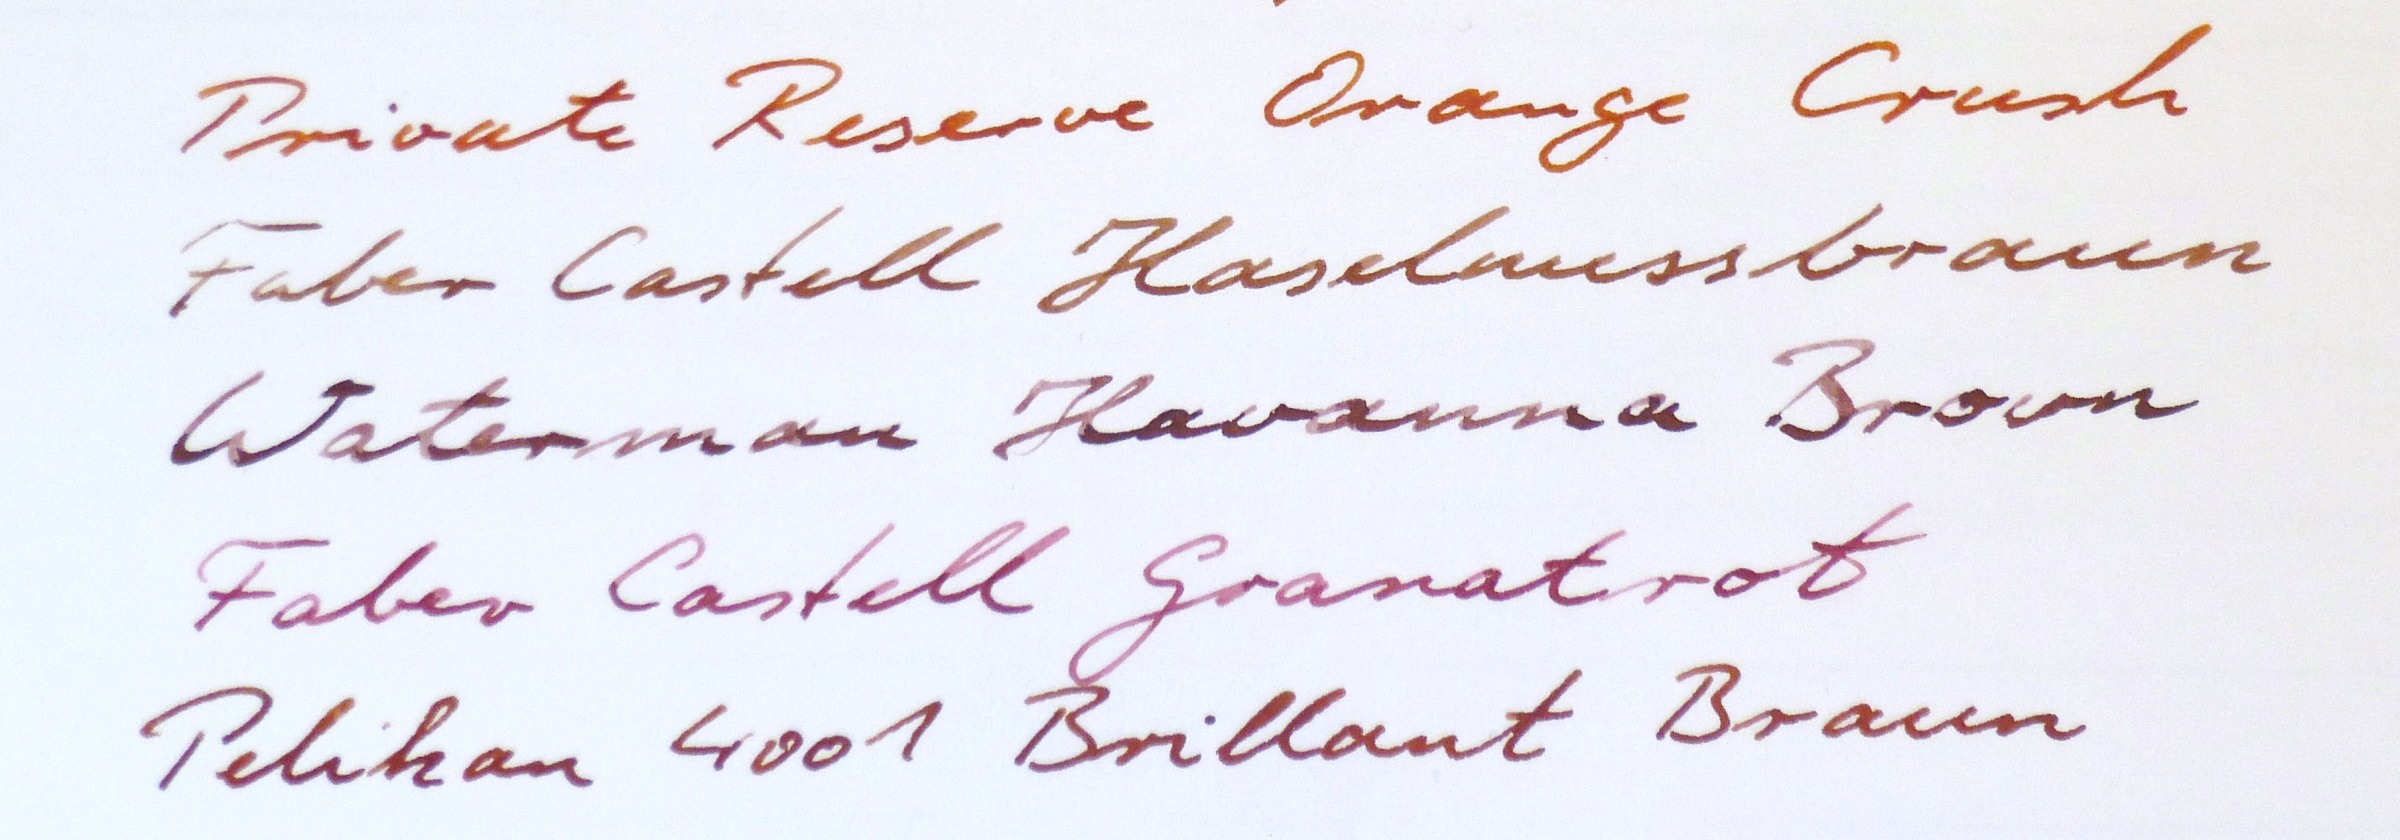 Private Reserve Orange Crush
Faber Castell Haselnussbraun
Waterman Havanna Brown
Faber Castell Granatrot
Pelikan 4001 Brillant Braun